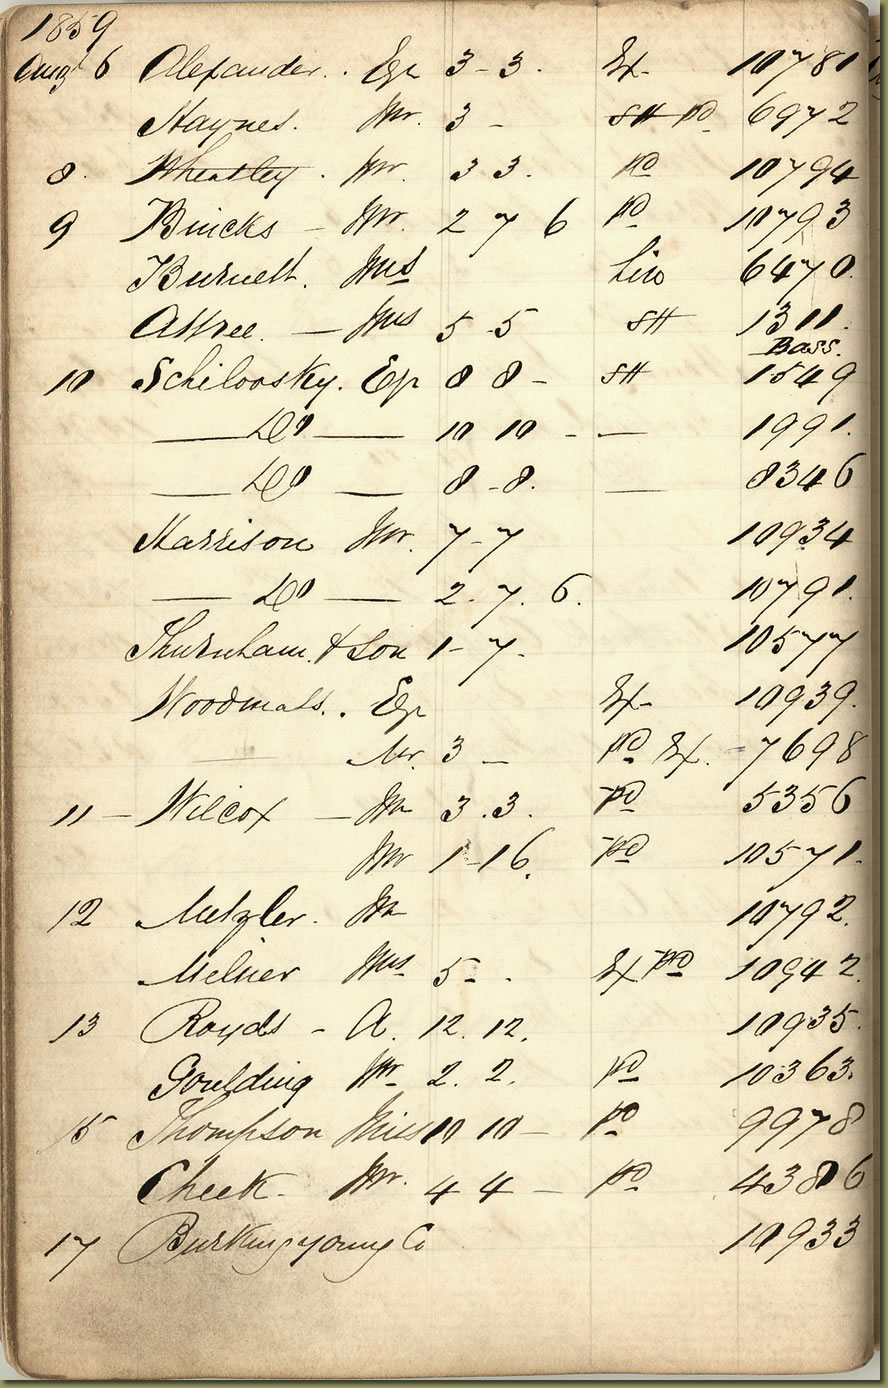 1859
Augt 6 Alexander. . Esqr 3 - 3 . Ex- 10781
Haynes. Mr. 3 - SH PD 6972
8. Wheatley . Mr. 3 3. PD 10794
9 Bincks - Mr. 2 7 6 PD 10793
Burnett. Mrs Liv 6470.
Attree. — Mrs 5 -5 SH 1311.
Bass.
10 Schiloosky. Esqr 8 8 - SH 1549
— Do — 10 10 - — 1991.
— Do — 8 -8. — 8346
Harrison Mr. 7-7 10934
— Do — 2. 7. 6. 10791.
Thurnham. & Son 1- 7. 10577
Woodmass. . Esqr Ex- 10939.
Mr. 3 - PD Ex. - 7698
11 - Wilcox - Mr 3 .3. PD 5356
Mr 1-16. PD 10571.
12 Metzler. Mr 10792.
Melner Mrs 5- . Ex PD 10942.
13 Royds - A. 12. 12. 10935.
Goulding Mr 2. 2. PD 10363.
15 Thompson Miss 10 10 - PD 9978
Cheek. Mr. 4 4 - PD 4386
17 Young Co 10933